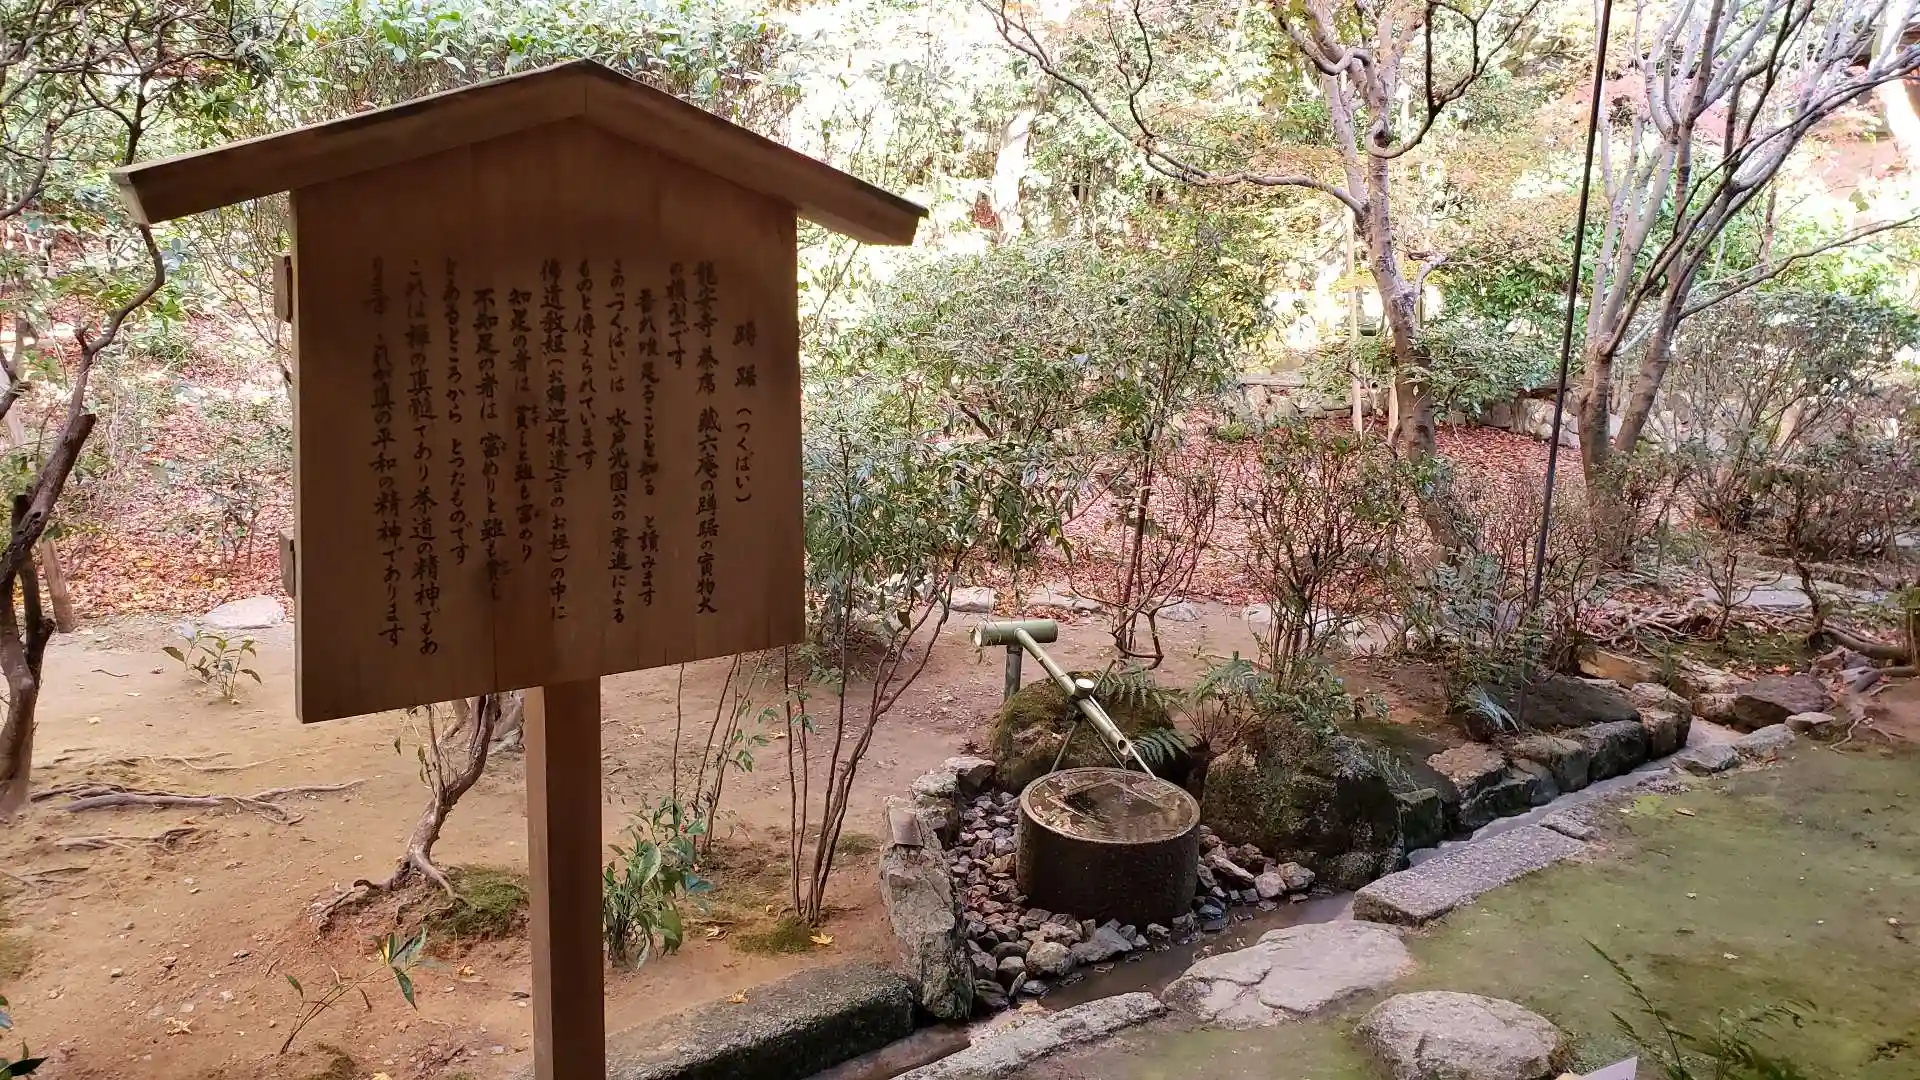 蹲踞(つくばい)
龍安寺 茶席 蔵六庵の蹲踞の實物大
の模型です
吾れ唯足ることを知る と讀みます
この「つくばい」は 水戸光圀公の寄進による
ものと傳えられています
佛道教経(お釋迦様遺言のお経)の中に
知足の者は 貧しと雖も富めり
不知足の者は 富めりと雖も貧し
とあるところから とつたものです
これは禅の真髄であり茶道の精神でもあ
ります これが真の平和の精神であります